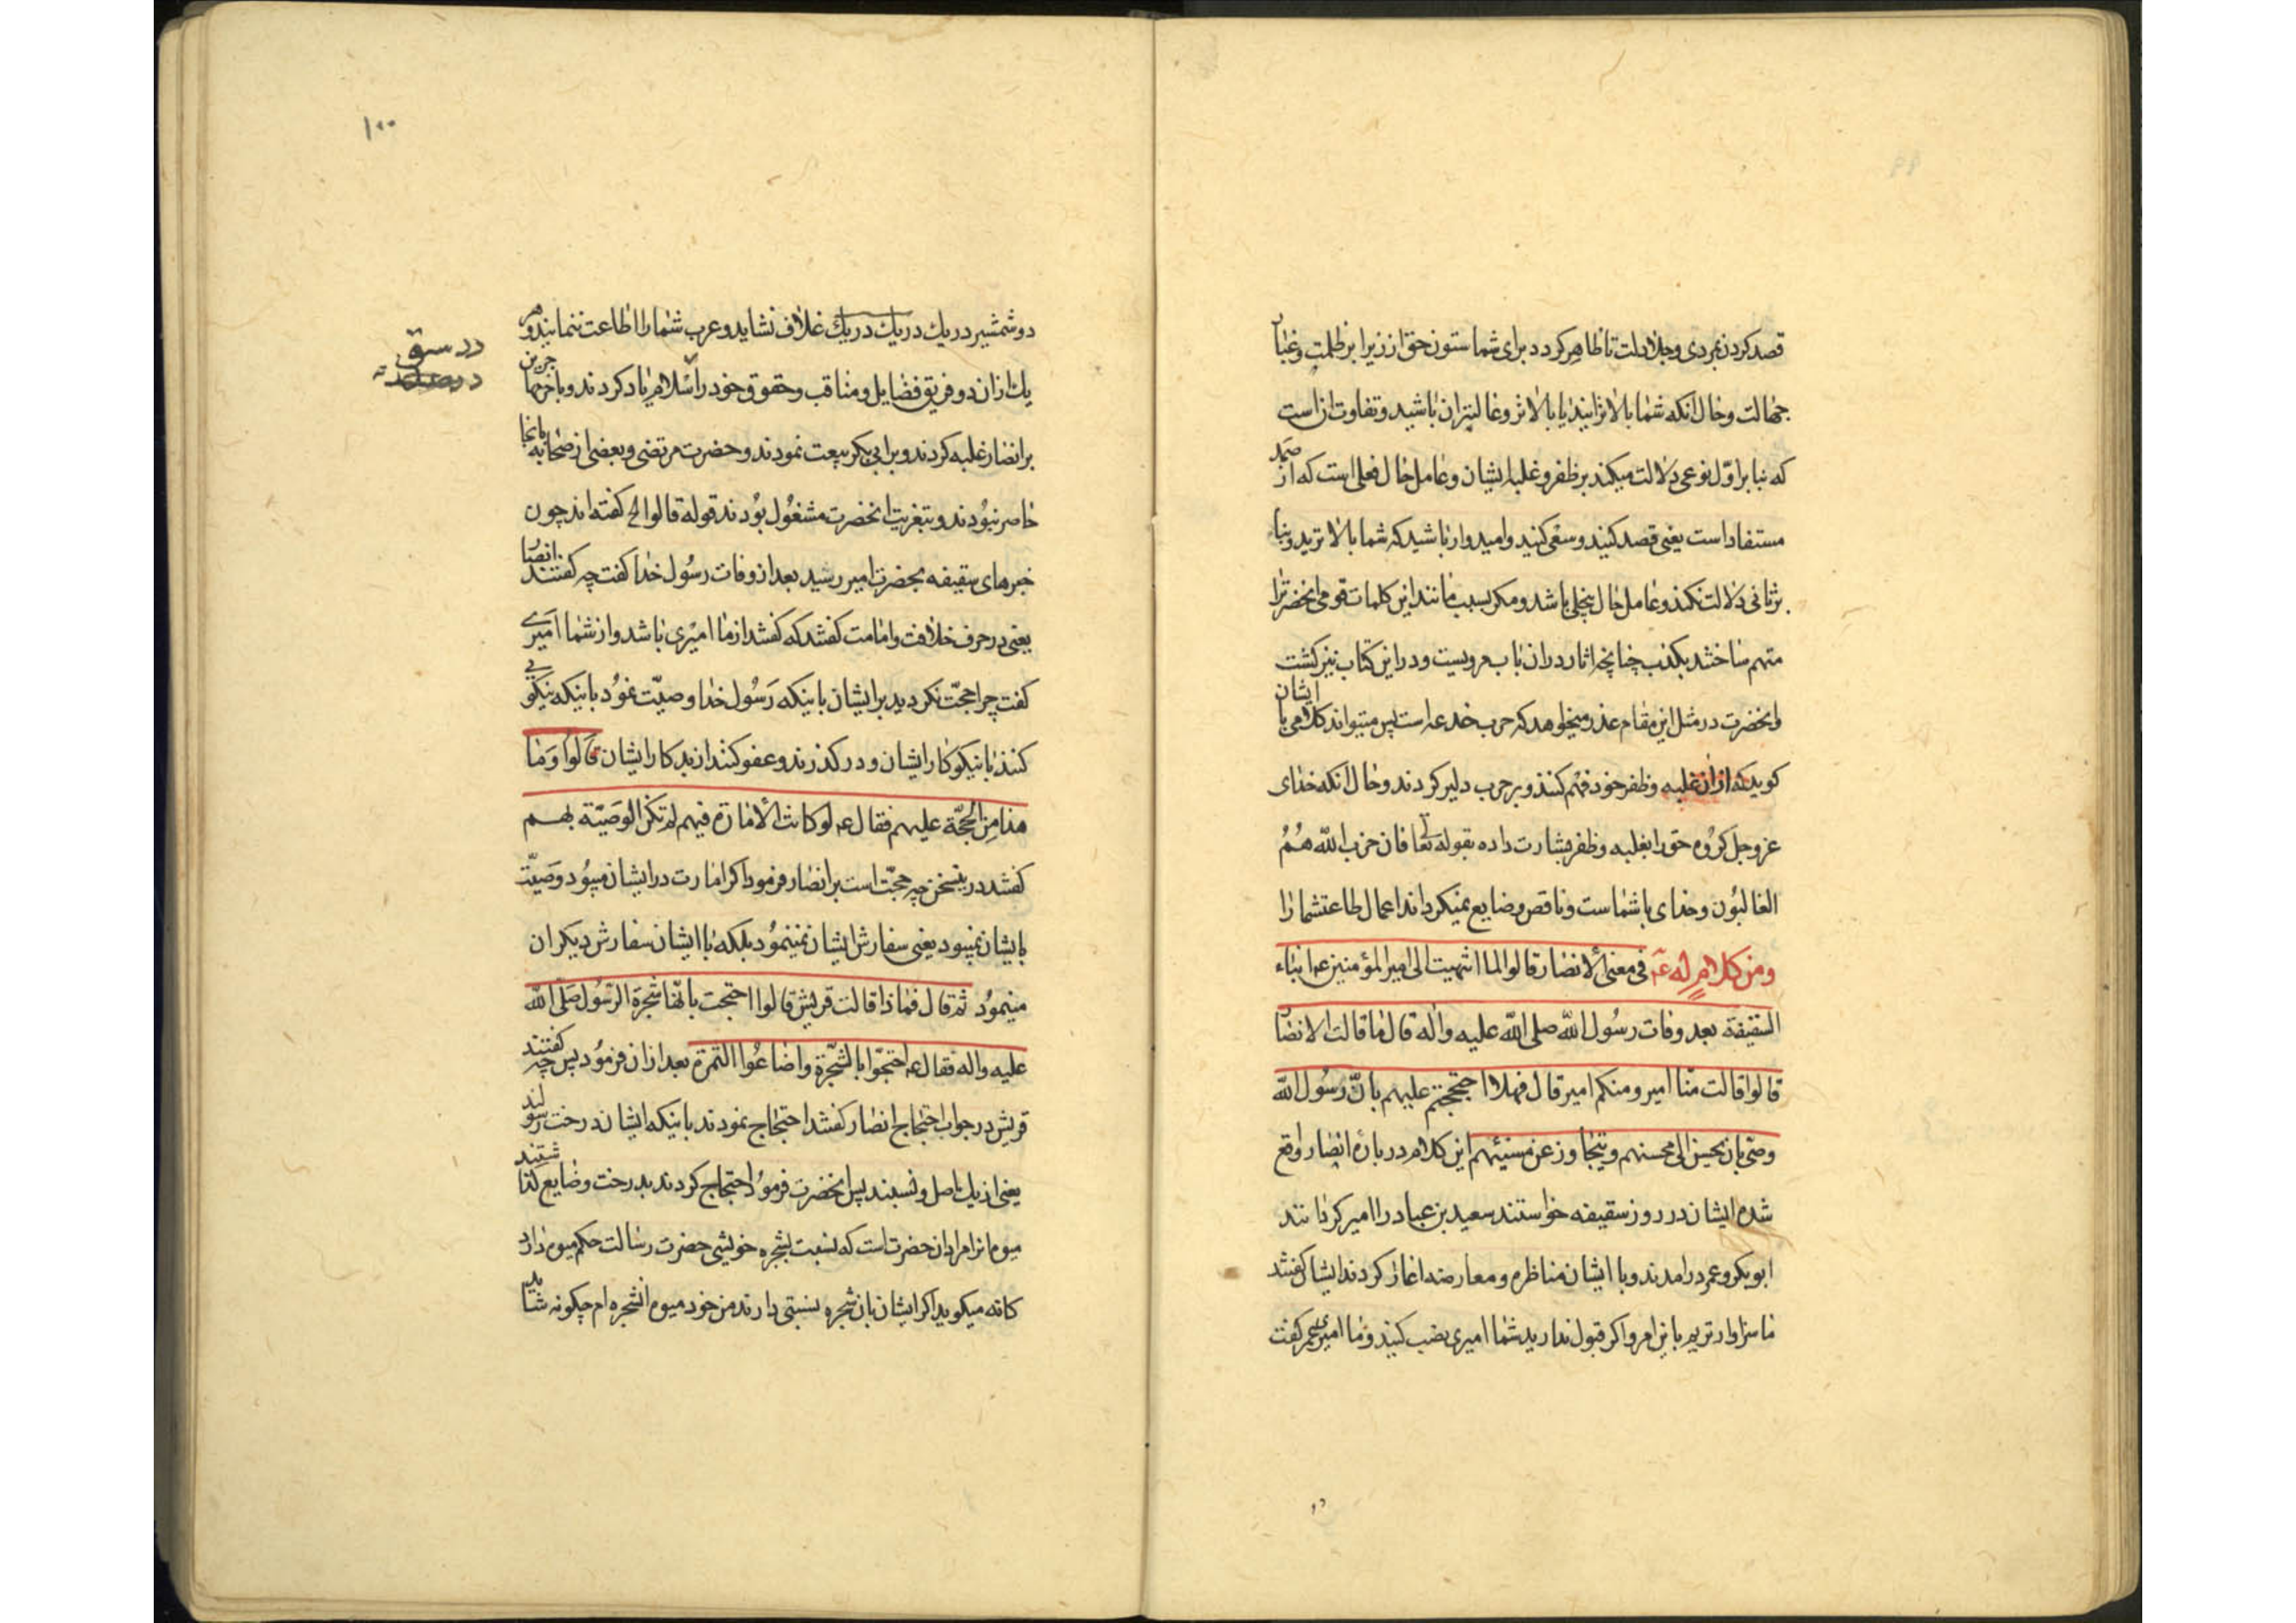 قصد کردن بمردی و جلادت تا ظاهر کردد برای شما ستون حق ازین ابر ظلمت و غبار
جهالت و حال آنکه شما بالاترانید یا بالاتر و غالبتران باشید و تفاوت انست
که بنا بر اول نوعی دلالت میکند بر ظفر و غلبه ایشان و عامل حال فعلی است که از صمد
مستفاد است یعنی قصد کنید و سعی کنید و امیدوار باشید که شما بالاترید و بنا
بر ثانی دلالت نکند و عامل حال ینجلی باشد و مکر بسبب مانند این کلمات قومی انحضرترا
متهم ساختند بکذب چنانچه اثار در ان باب مرویست و در این کتاب نیز کذشت
وانحضرت در مثل این مقام عذر میخواهد که حرب خدعه است پس میتواند کلامی با ایشان
کوید که ازان غلبه وظفر خود فهم کنند و بر حرب دلیر کردند و حال آنکه خدای
عز وجل کروه حق را بغلبه وظفر بشارت داده بقوله تعالی فان حزب الله هُمُ
الغالبُون و خدای با شماست و ناقص و ضایع نمیکرداند اعمال طاعت شما را
ومن کلام له عۤ فی معنی الانصار قالوا لما انتهیت الی امیر المؤمنین عۤ انباء
السقیفة بعد وفات رسُول الله صلی الله علیه واله قال ما قالت الانصار
قالوا قالت منّا امیر ومنکم امیر قال فهلا احتججتم علیهم بانّ رسُول الله
وصّی بان یحسن الی محسنهم ویتجاوز عن مسیئهم این کلام در بارهٔ انصار واقع
شده ایشان در روز سقیفه خواستند سعید بن عباد را امیر کردانند
ابوبکر و عمر درامدند و با ایشان مناظره و معارضه اغاز کردند ایشان کفتند
ما سزاوارتریم باین امر و اکر قبول ندارید شما امیری نصب کنید و ما امیری عمر کفت
۱۰۰
دو شمشیر در یك در یك در یك غلاف نشاید و عرب شما را اطاعت ننمایند و هر
یك ازان دو فریق فضایل و مناقب و حقوق خود را سلام یاد کردند و باخر مهاجرین
بر انصار غلبه کردند و بر ابی بکر بیعت نمودند و حضرت مرتضی و بعضی از صحابه بانجا
حاضر نبُودند و بتعزیت انحضرت مشغُول بُودند قوله قالوا الخ کفته اند چون
خبرهای سقیفه بحضرت امیر رسید بعد از وفات رسُول خدا کفت چه کفتند انصار
یعنی در حرف خلافت و امامت کفتند که کفتند از ما امیری باشد و از شما امیری
کفت چرا حجّت نکردید بر ایشان باینکه رَسُول خدا وصیّت نمُود باینکه نیکویی
کنند با نیکوکار ایشان و در کذرند و عفو کنند از بدکار ایشان قالُوا وَما
هذا مِن الحُجّة علیهم فقال عۤ لو کانت الأمارة فیهم لم تکن الوَصیّة بهم
کفتند در ینسخن چه حجّت است بر انصار فرمود اکر امارت در ایشان میبُود وصیّت
بایشان نمیبود یعنی سفارش ایشان نمینمُود بلکه با ایشان سفارش دیکران
مینمُود ثم قال فماذا قالت قریش قالوا احتجت بانّها شجرة الرّسُول صَلی الله
علیه واله فقال عۤ احتجّوا بالشّجرة واضاعُوا الثمرة بعد ازان فرمُود پس چه کفتند
قریش در جواب احتجاج انصار کفتند احتجاج نمودند باینکه ایشان درخت رسولند
یعنی از یك اصل و نسبند پس انحضرت فرمُود احتجاج کردند بدرخت و ضایع کذاشتند
میوه مانرا مراد ان حضرت است که نسبت بشجره خویشی حضرت رسالت حکم میوه دارد
کانه میکوید اکر ایشان بان شجره نسبتی دارند من خود میوه انشجره ام چکونه شناید